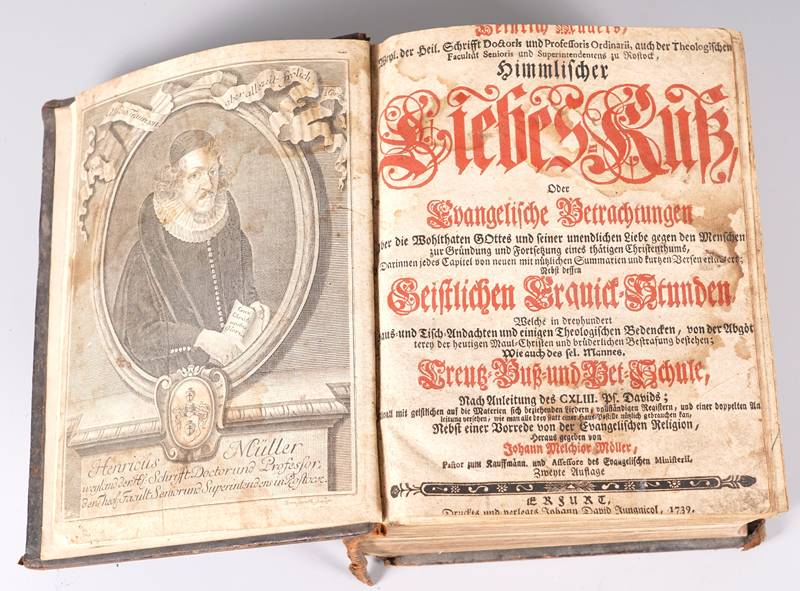 allzeit frölich
Henricus Müller
weyland der H. Schrifft Doctor und Professor,
der Theol. Facult. Senior und Superintendens in Rostock.
Heinrich Müllers,
der Heil. Schrifft Doctoris und Professoris Ordinarii, auch der Theologischen
Facultät Senioris und Superintendentens zu Rostock,
Himmlischer
Liebes-Kuß,
Oder
Evangelische Betrachtungen
über die Wohlthaten GOttes und seiner unendlichen Liebe gegen den Menschen
zur Gründung und Fortsetzung eines thätigen Christenthums,
Darinnen jedes Capitel von neuen mit nützlichen Summarien und kurtzen Versen erläutert;
Nebst dessen
Geistlichen Erquick-Stunden
Welche in dreyhundert
Haus- und Tisch-Andachten und einigen Theologischen Bedencken, von der Abgöt
terey der heutigen Maul-Christen und brüderlichen Bestrafung bestehen;
Wie auch des sel. Mannes.
Creutz-Buß-und Bet-Schule,
Nach Anleitung des CXLIII. Ps. Davids;
mit geistlichen auf die Materien sich beziehenden Liedern, vollständigen Registern, und einer doppelten An
leitung versehen, wie man alle drey statt einer Haus-Postille nützlich gebrauchen kan,
Nebst einer Vorrede von der Evangelischen Religion,
Heraus gegeben von
Johann Melchior Möller,
Pastor zum Kauffmänn. und Assessore des Evangelischen Ministerii.
Zweyte Auflage
ERFURT,
Druckts und verlegts Johann David Jungnicol, 1739.